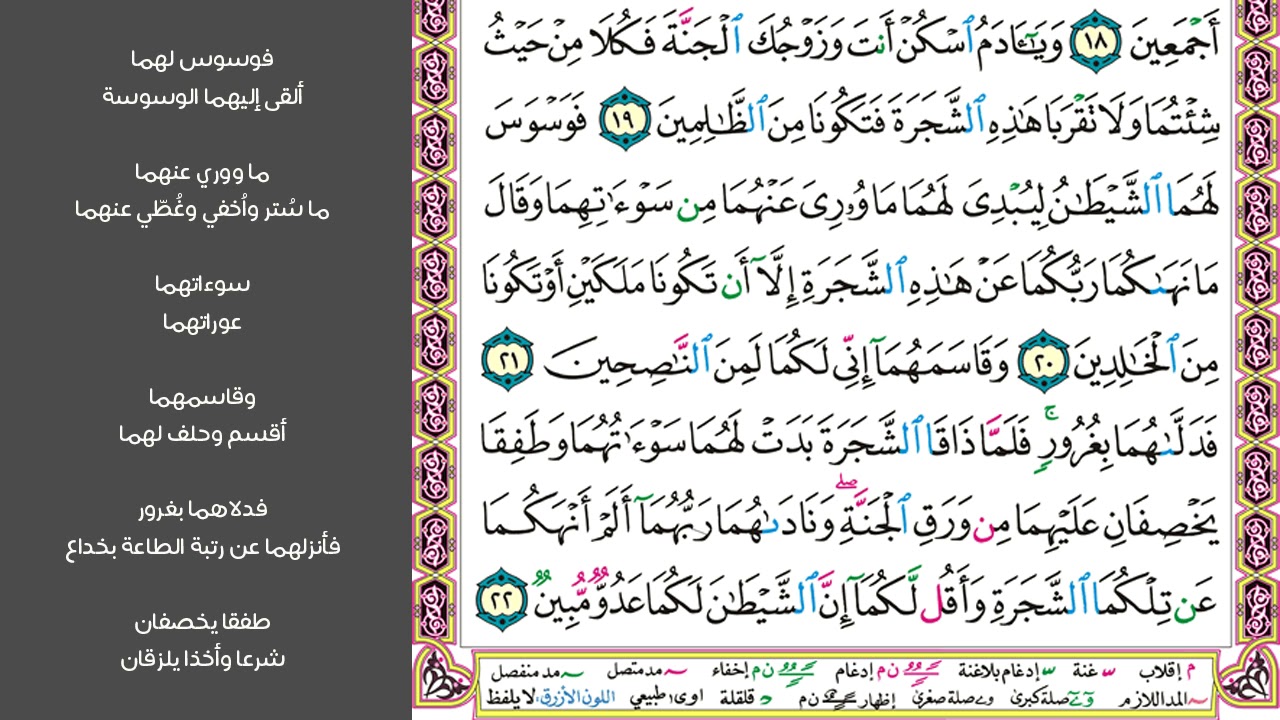 أَجْمَعِينَ ١٨ وَيَـٰٓـَٔادَمُ ٱسْكُنْ أَنتَ وَزَوْجُكَ ٱلْجَنَّةَ فَكُلَا مِنْ حَيْثُ
شِئْتُمَا وَلَا تَقْرَبَا هَـٰذِهِ ٱلشَّجَرَةَ فَتَكُونَا مِنَ ٱلظَّـٰلِمِينَ ١٩ فَوَسْوَسَ
لَهُمَا ٱلشَّيْطَـٰنُ لِيُبْدِىَ لَهُمَا مَا وُۥرِىَ عَنْهُمَا مِن سَوْءَٰتِهِمَا وَقَالَ
مَا نَهَىٰكُمَا رَبُّكُمَا عَنْ هَـٰذِهِ ٱلشَّجَرَةِ إِلَّآ أَن تَكُونَا مَلَكَيْنِ أَوْ تَكُونَا
مِنَ ٱلْخَـٰلِدِينَ ٢٠ وَقَاسَمَهُمَآ إِنِّى لَكُمَا لَمِنَ ٱلنَّـٰصِحِينَ ٢١
فَدَلَّىٰهُمَا بِغُرُورٍ ۚ فَلَمَّا ذَاقَا ٱلشَّجَرَةَ بَدَتْ لَهُمَا سَوْءَٰتُهُمَا وَطَفِقَا
يَخْصِفَانِ عَلَيْهِمَا مِن وَرَقِ ٱلْجَنَّةِ ۖ وَنَادَىٰهُمَا رَبُّهُمَآ أَلَمْ أَنْهَكُمَا
عَن تِلْكُمَا ٱلشَّجَرَةِ وَأَقُل لَّكُمَآ إِنَّ ٱلشَّيْطَـٰنَ لَكُمَا عَدُوٌّ مُّبِينٌ ٢٢
م إقلاب غنة إدغام بلاغنة ن م إدغام ن م إخفاء مد متصل مد منفصل
المد اللازم صلة كبرى و ے صلة صغرى إظهار ن م قلقلة اوى طبيعي اللون الأزرق: لا يلفظ
فوسوس لهما
ألقى إليهما الوسوسة
ما ووري عنهما
ما سُتر واُخفي وغُطّي عنهما
سوءاتهما
عوراتهما
وقاسمهما
أقسم وحلف لهما
فدلاهما بغرور
فأنزلهما عن رتبة الطاعة بخداع
طفقا يخصفان
شرعا وأخذا يلزقان